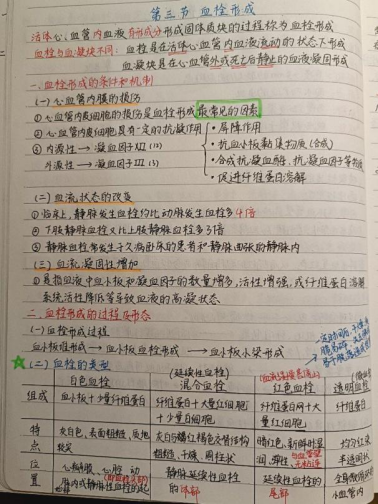 第三节 血栓形成
活体心、血管内血液有形成分形成固体质块的过程称为血栓形成
血栓与凝块不同：血栓是在活体心血管内血液流动的状态下形成
血凝块是在心血管外或死亡后静止的血液凝固形成
一、血栓形成的条件和机制
(一)心血管内膜的损伤
①心血管内皮细胞的损伤是血栓形成最常见的因素
②心血管内皮细胞具有一定的抗凝作用
·屏障作用
·抗血小板黏集物质(合成)
·合成抗凝血酶、抗凝血因子等物质
·促进纤维蛋白溶解
④内源性→凝血因子XII(12)
外源性→凝血因子
(二)血流状态的改变
①临床上,静脉发生血栓约比动脉发生血栓多4倍
②下肢静脉血栓又比上肢静脉血栓多3倍
③静脉血栓常发生于久病卧床的患者和静脉曲张的静脉内
(三)血流凝固性增加
①是指血液中血小板和凝血因子的数量增多,活性增强,或纤维蛋白溶解
系统活性降低等导致血液的高凝状态
二、血栓形成的过程及形态
(一)血栓形成过程
血小板堆形成→血小板血栓形成→血小板小梁形成
(二)血栓的类型
白色血栓
(延续性血栓)
混合血栓
红色血栓
透明血栓
组成
血小板+少量纤维蛋白
纤维蛋白+大量红细胞
+少量白细胞
纤维蛋白网+大
量红细胞
纤维蛋白
特点
灰白色、表面粗糙、质地
较实
灰白与褐红褐色交替结构
粗糙、干燥、圆柱状
暗红色、新鲜时湿
润,弹性、与血管壁
无粘连
均匀红染
半透明状
位置
心瓣膜、心腔、动
脉内或静脉性血栓的起
静脉延续性血栓
的体部
延续性血栓的
尾部
小血管内